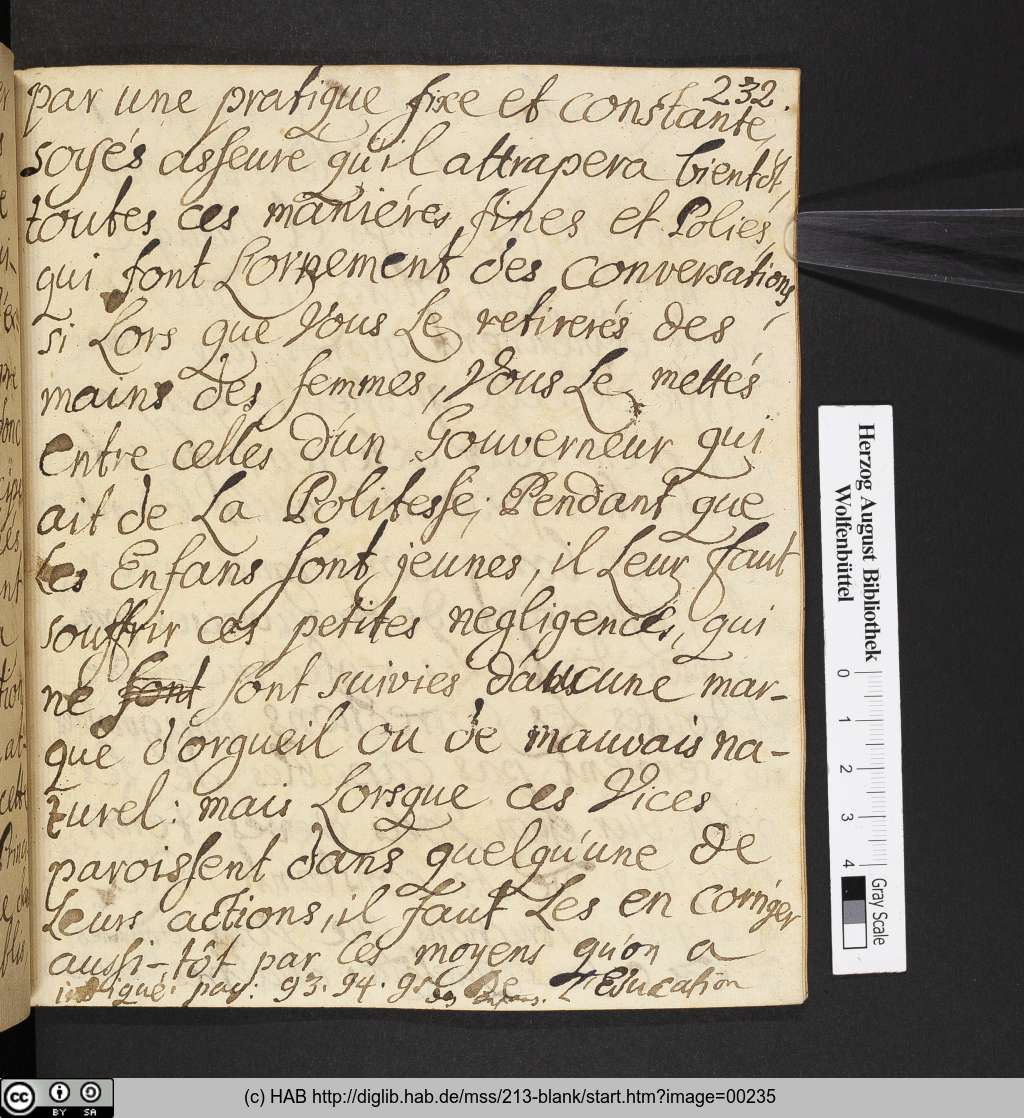 232.
par une pratique fixe et constante,
soyés asseure qu'il attrapera bientôt,
toutes ces maniéres fines et Polies,
qui font L'ornement des conversations,
si Lors que Vous Le retirerés des
mains des femmes, Vous Le mettés
entre celles d'un Gouverneur qui
ait de La Politesse; Pendant que
Les Enfans sont jeunes, il Leur faut
souffrir ces petites negligences, qui
ne font sont suivies d'aucune mar-
que d'orgueil ou de mauvais na-
turel: mais Lorsque ces Vices
paroissent dans quelqu'une de
Leurs actions, il faut Les en corriger
aussi-tôt par les moyens qu'on a
indiqué. pag: 93. 94. 95 De L'Education
des Enfans.
Herzog August Bibliothek
Wolfenbüttel
0 1 2 3 4
Gray Scale
cc BY SA
(c) HAB http://diglib.hab.de/mss/213-blank/start.htm?image=00235